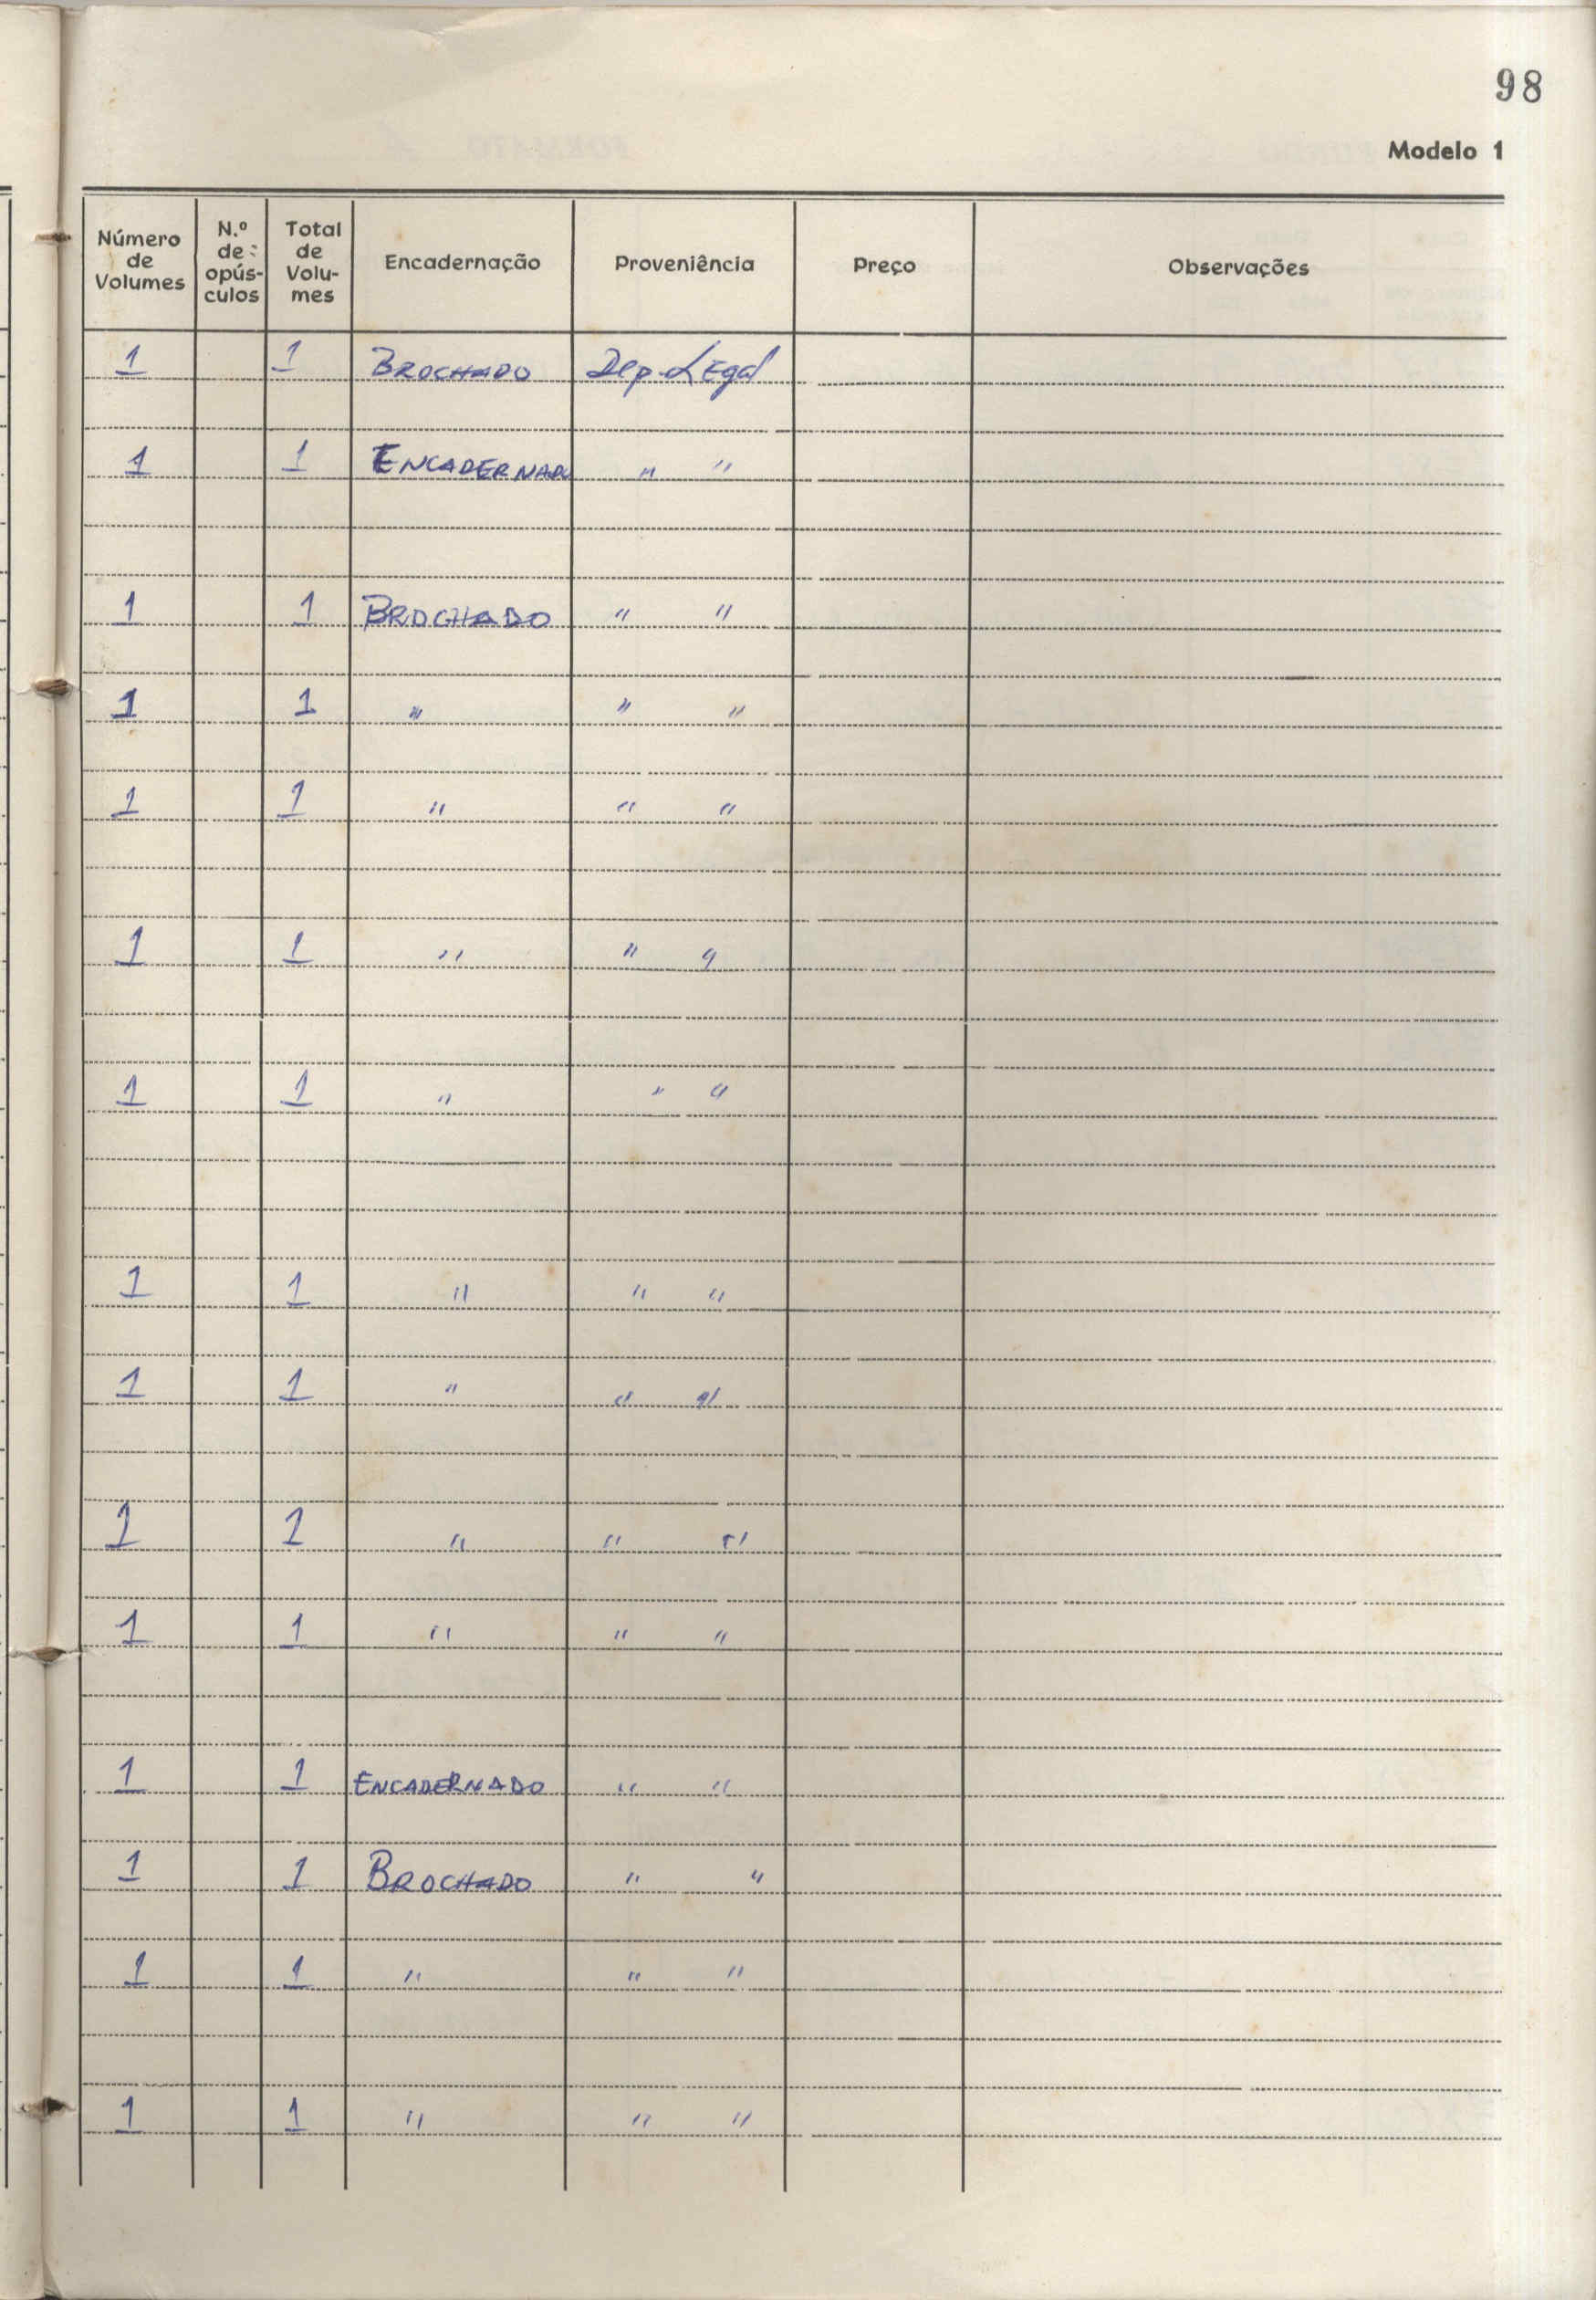 98
Modelo 1
Número de Volumes | N.º de opús-culos | Total de Volu-mes | Encadernação | Proveniência | Preço | Observações
1 1 BROCHADO Dep. Legal
1 1 ENCADERNADO " "
1 1 BROCHADO " "
1 1 " " "
1 1 " " "
1 1 " " "
1 1 " " "
1 1 " " "
1 1 " " "
1 1 " " "
1 1 " " "
1 1 ENCADERNADO " "
1 1 BROCHADO " "
1 1 " " "
1 1 " " "